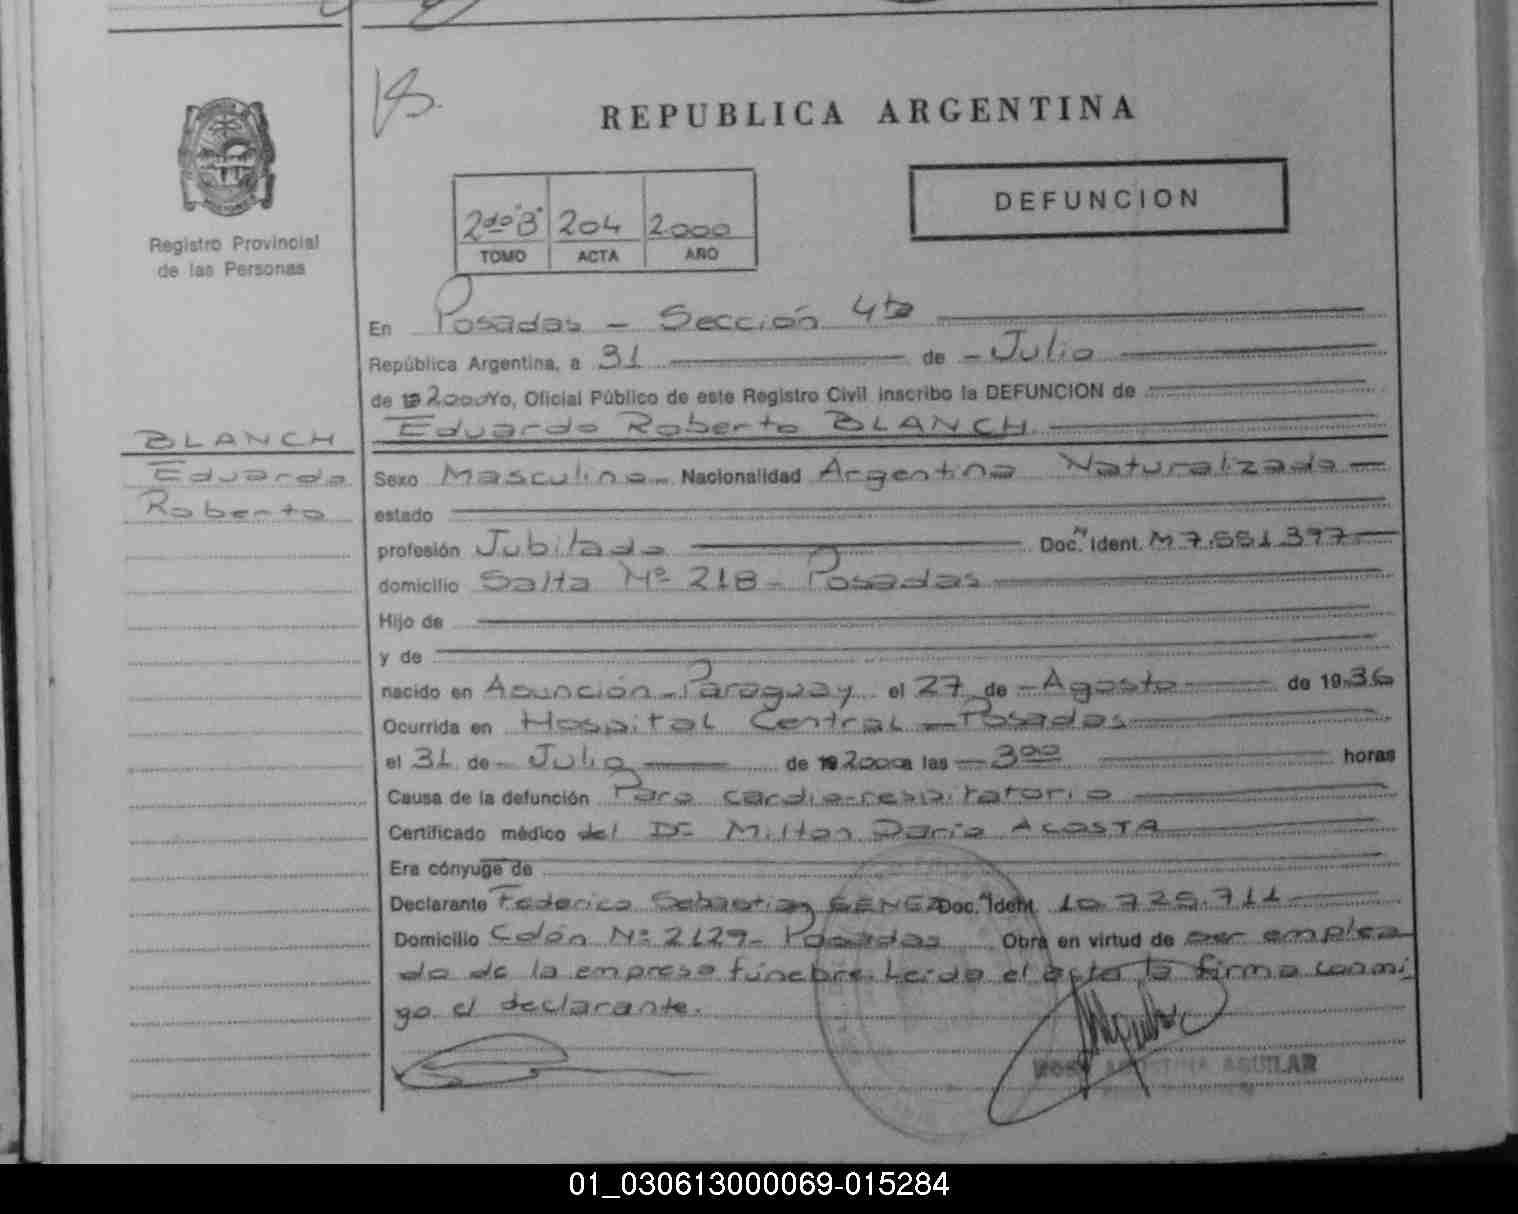 REPUBLICA ARGENTINA
DEFUNCION
2do "B" 204 2000
TOMO ACTA AÑO
Registro Provincial
de las Personas
En Posadas - Sección 4ta
República Argentina, a 31 de - Julio
de 19 2000 Yo, Oficial Público de este Registro Civil inscribo la DEFUNCION de
Eduardo Roberto BLANCH
BLANCH
Eduardo
Roberto
Sexo Masculino - Nacionalidad Argentino Naturalizado
estado
profesión Jubilado Doc. Ident. M 7.551.397
domicilio Salta Nº 218 - Posadas
Hijo de
y de
nacido en Asunción - Paraguay el 27 de - Agosto de 1936
Ocurrida en Hospital Central - Posadas
el 31 de - Julio de 19 2000 a las - 3 00 horas
Causa de la defunción Paro cardio-respiratorio
Certificado médico del Dr Milton Dario ACOSTA
Era cónyuge de
Declarante Federico Sebastian Doc. Ident. 10.725.711
Domicilio Colón Nº 2129 - Posadas Obra en virtud de ser emplea
do de la empresa fúnebre. Leida el acta la firma conmi
go el declarante.
AGUILAR
01_030613000069-015284